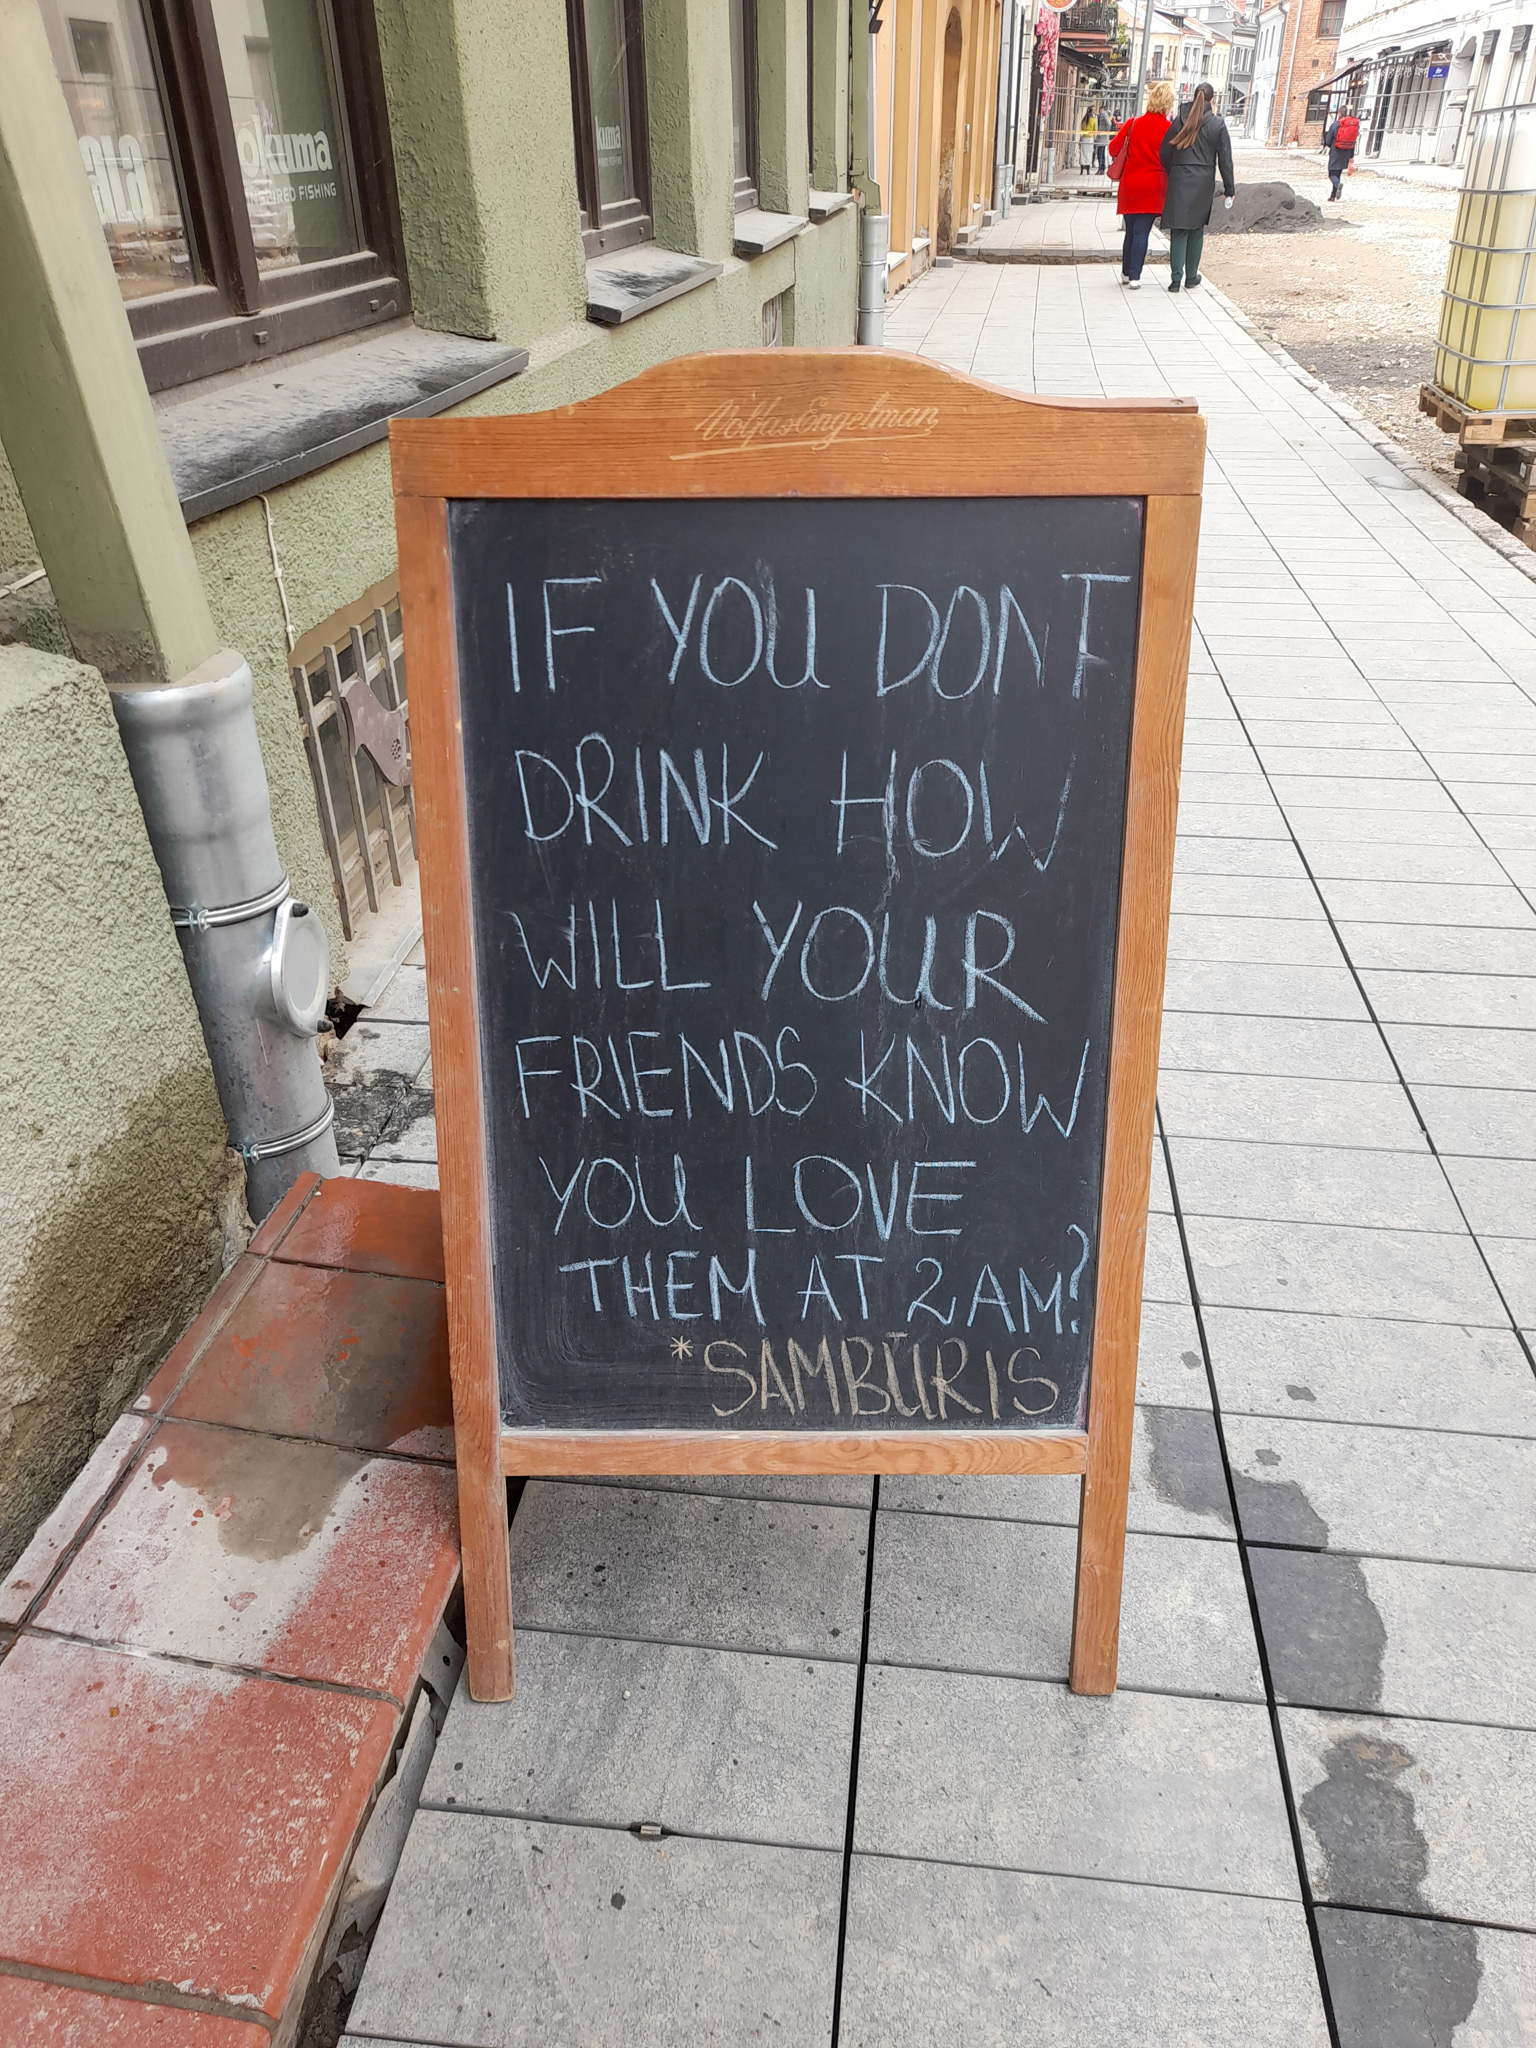 okuma
INSPIRED FISHING
kuma
Volfas Engelman
IF YOU DONT
DRINK HOW
WILL YOUR
FRIENDS KNOW
YOU LOVE
THEM AT 2AM?
*SAMBŪRIS